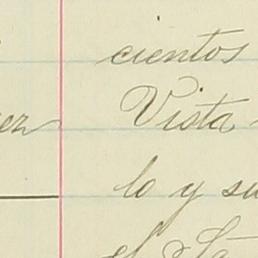 cientos
Vista
lo y su
el